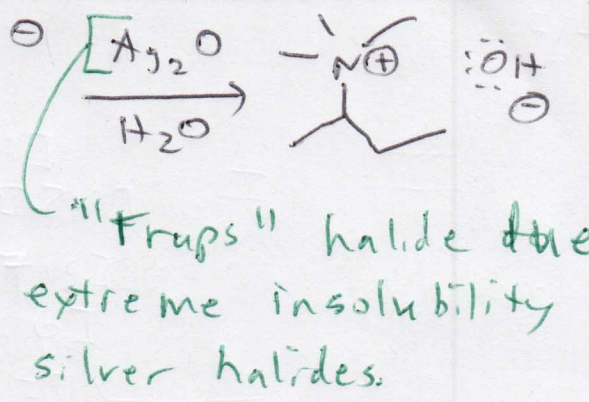 ⊖ [Ag₂O
H₂O
N⊕ :ÖH ⊖
"Traps" halide due
extreme insolubility
silver halides.